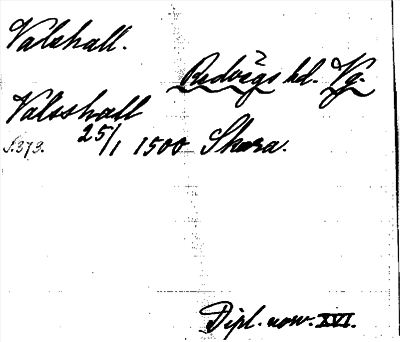 Valshall.
Redvägs hd. Vg.
Valsshall
s. 373. 25/1 1500 Skara.
Dipl. norv. XVI.